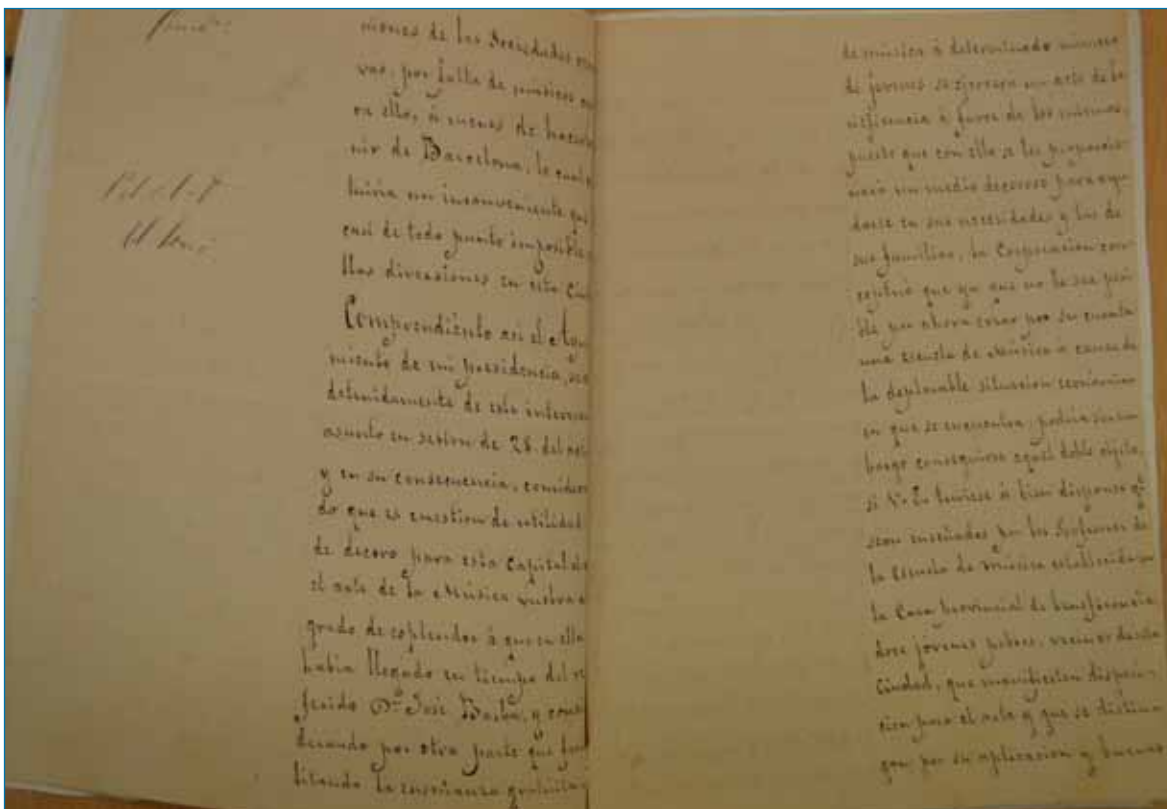 niones de las Sociedades
vas, por falta de músicos
ra ello, á menos de hacer
nir de Barcelona, lo cual
tuiria un inconveniente que
casi de todo punto imposible
llas diversiones en esta Ciu
Comprendiéndolo asi el Ayun
miento de mi presidencia,
detenidamente de este interesan
asunto en sesion de 28. del
y en su consecuencia, consideran
do que es cuestion de utilidad
de decoro para esta Capital
el arte de la Música vuelva
grado de esplendor á que en ella
habia llegado en tiempo del re
ferido Dn. José Barba, y consi
derando por otra parte que faci
litando la enseñanza gratuita
de música á determinado número
de jóvenes se ejercerá un acto de be
neficencia á favor de los mismos,
puesto que con ella se les proporcio
nará un medio decoroso para ayu
darse en sus necesidades y las de
sus familias, la Corporacion con
ceptuó que ya que no le sea posi
ble por ahora crear por su cuenta
una escuela de Música á causa de
la deplorable situacion económica
en que se encuentra, podria sin em
bargo conseguirse aquel doble objeto,
si V. E. tuviese á bien disponer qe.
sean enseñados por los Profesores de
la Escuela de música establecida en
la Casa provincial de beneficencia
doce jóvenes pobres, vecinos de esta
Ciudad, que manifiesten disposi-
cion para el arte y que se distin
gan por su aplicacion y buenas